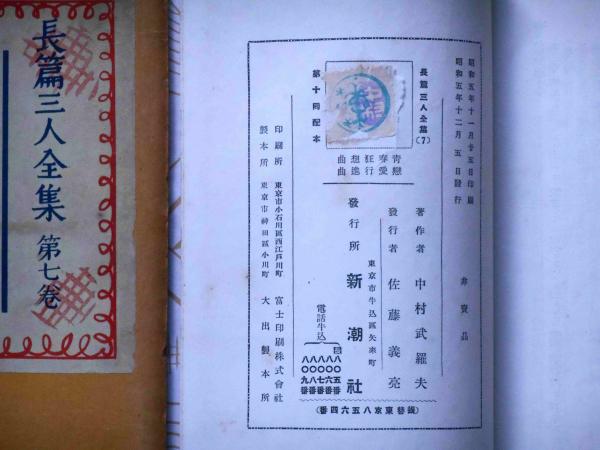 長篇三人全集 第七卷
昭和五年十一月廿五日印刷
昭和五年十二月五日發行
非賣品
長篇三人全集(7)
第十回配本
青春狂想曲
戀愛行進曲
著作者 中村武羅夫
發行者 佐藤義亮
東京市牛込區矢來町
發行所 新潮社
電話牛込
八〇五番
八〇六番
八〇七番
八〇八番
八〇九番
印刷所 東京市小石川區西江戸川町 富士印刷株式會社
製本所 東京市神田區小川町 大出製本所
(振替東京八五六四番)